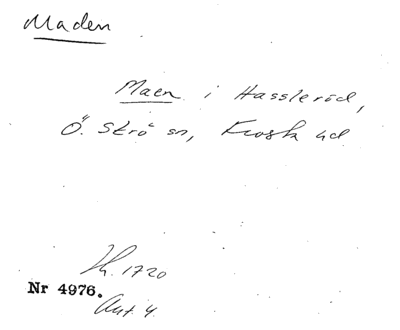 Maden
Maen i Hassleröd,
Ö. Strö sn, Frosta hd
Jh. 1720
Nr 4976.
Akt. 4.